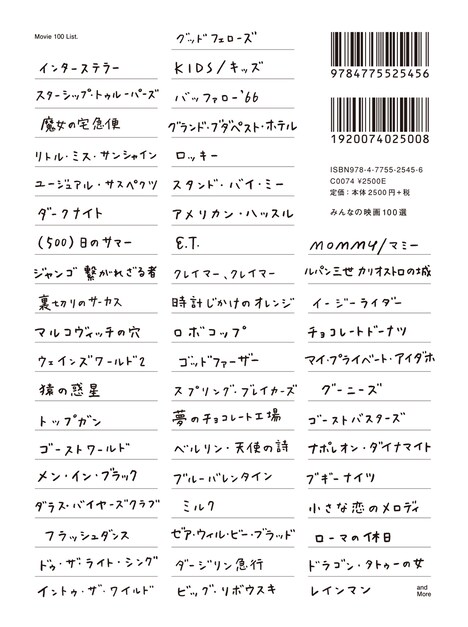 Movie 100 List.
インターステラー
スターシップ・トゥルーパーズ
魔女の宅急便
リトル・ミス・サンシャイン
ユージュアル・サスペクツ
ダークナイト
(500)日のサマー
ジャンゴ 繋がれざる者
裏切りのサーカス
マルコヴィッチの穴
ウェインズワールド2
猿の惑星
トップガン
ゴーストワールド
メン・イン・ブラック
ダラス・バイヤーズクラブ
フラッシュダンス
ドゥ・ザ・ライト・シング
イントゥ・ザ・ワイルド
グッドフェローズ
KIDS/キッズ
バッファロー'66
グランド・ブダペスト・ホテル
ロッキー
スタンド・バイ・ミー
アメリカン・ハッスル
E.T.
クレイマー、クレイマー
時計じかけのオレンジ
ロボコップ
ゴッドファーザー
スプリング・ブレイカーズ
夢のチョコレート工場
ベルリン・天使の詩
ブルーバレンタイン
ミルク
ゼア・ウィル・ビー・ブラッド
ダージリン急行
ビッグ・リボウスキ
9784775525456
1920074025008
ISBN978-4-7755-2545-6
C0074 ¥2500E
定価：本体2500円+税
みんなの映画100選
MOMMY/マミー
ルパン三世 カリオストロの城
イージーライダー
チョコレートドーナツ
マイ・プライベート・アイダホ
グーニーズ
ゴーストバスターズ
ナポレオン・ダイナマイト
ブギーナイツ
小さな恋のメロディ
ローマの休日
ドラゴン・タトゥーの女
レインマン
and
More